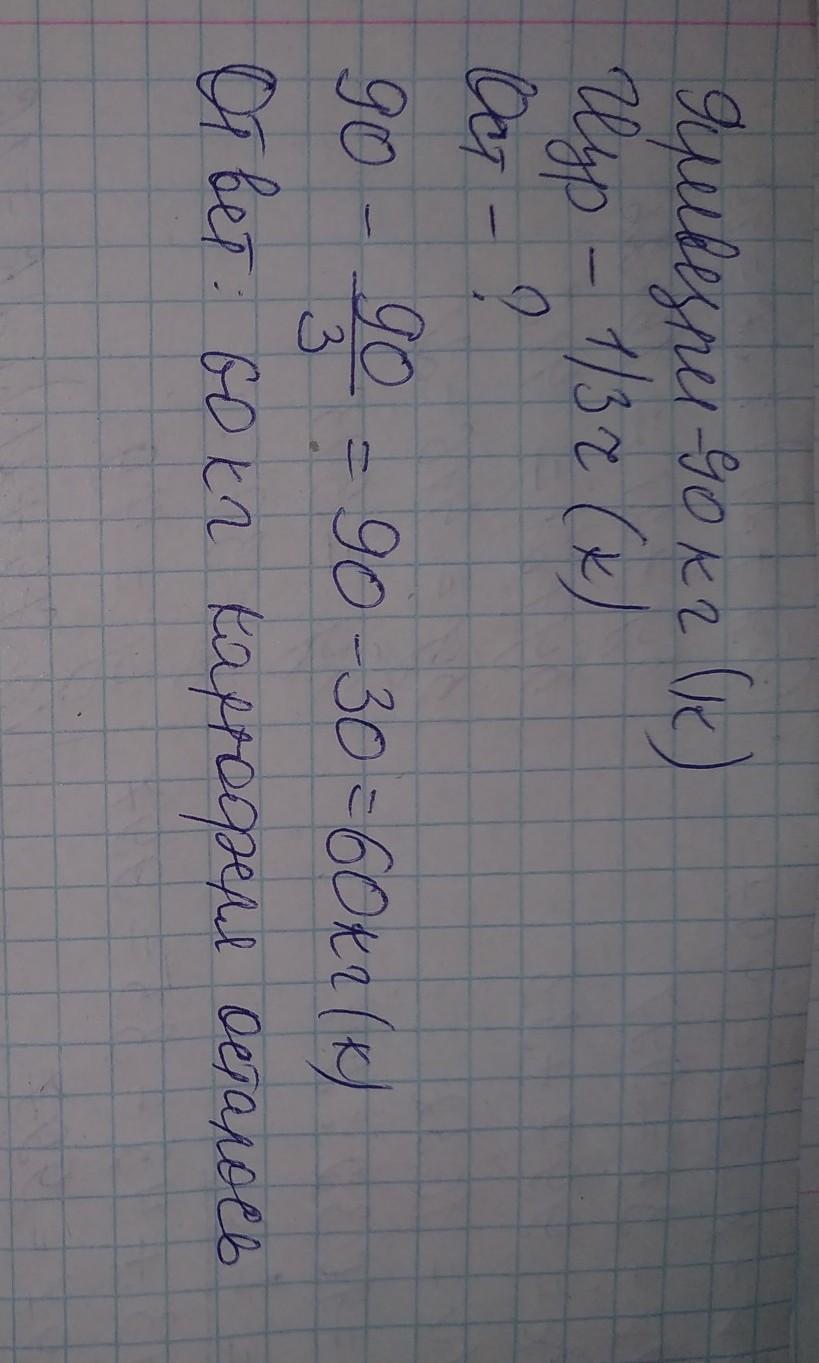 Привезли - 90 кг (к)
Изр - 1/3 ч (к)
Ост - ?
90 - 90/3 = 90 - 30 = 60 кг (к)
Ответ: 60 кг картофеля осталось